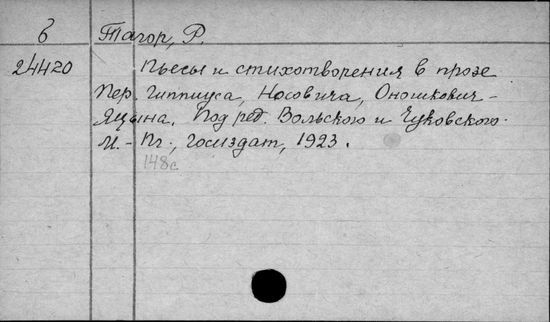 б Тагор, Р.
24420 Пьесы и стихотворения в прозе
Пер. Гиппиуса, Носовича, Оношкович-
Яцына. Под ред. Вольского и Чуковского.
М.-Пг., Госиздат, 1923.
148с